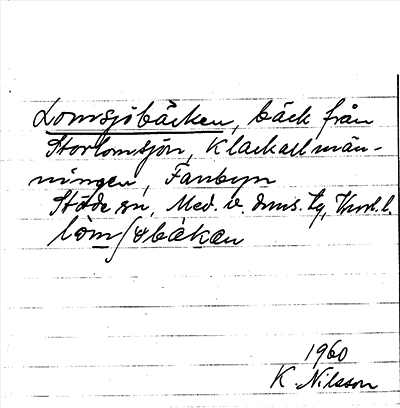 Lomsjöbäcken, bäck från
Storlomsjön, Klackallmän-
ningen, Fanbyn
Stöde sn, Med. v. doms. tg,
lòm bäkan
1960
K. Nilsson